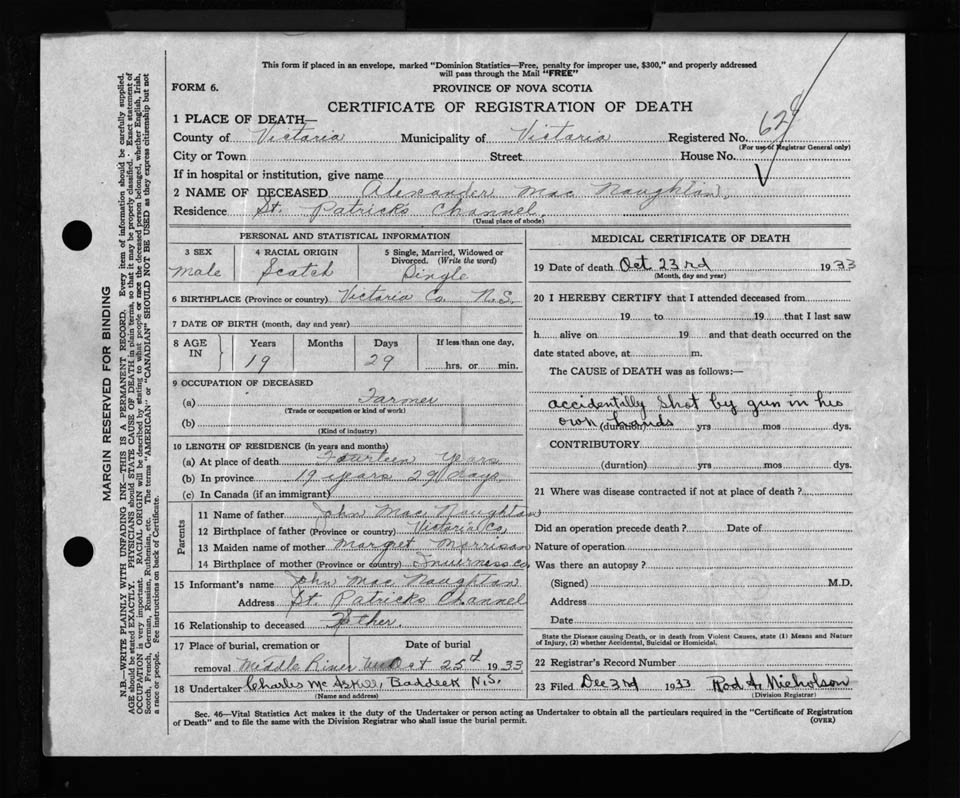 This form if placed in an envelope, marked "Dominion Statistics—Free, penalty for improper use, $300," and properly addressed
will pass through the Mail "FREE"
FORM 6. PROVINCE OF NOVA SCOTIA
CERTIFICATE OF REGISTRATION OF DEATH
1 PLACE OF DEATH—
County of Victoria Municipality of Victoria Registered No. 628
(For use of Registrar General only)
City or Town Street House No.
If in hospital or institution, give name
2 NAME OF DECEASED Alexander Mac Naughtan
Residence St. Patricks Channel.
(Usual place of abode)
PERSONAL AND STATISTICAL INFORMATION
3 SEX 4 RACIAL ORIGIN 5 Single, Married, Widowed or
Divorced. (Write the word)
Male Scotch Single
6 BIRTHPLACE (Province or country) Victoria Co N.S.
7 DATE OF BIRTH (month, day and year)
8 AGE IN Years Months Days If less than one day,
19 29 hrs. or min.
9 OCCUPATION OF DECEASED
(a) Farmer
(Trade or occupation or kind of work)
(b)
(Kind of industry)
10 LENGTH OF RESIDENCE (in years and months)
(a) At place of death Fourteen Years
(b) In province 19 years 29 days
(c) In Canada (if an immigrant)
Parents
11 Name of father John Mac Naughtan
12 Birthplace of father (Province or country) Victoria Co
13 Maiden name of mother Margret Morrison
14 Birthplace of mother (Province or country) Inverness co
15 Informant's name John Mac Naughtan
Address St. Patricks Channel
16 Relationship to deceased Father.
17 Place of burial, cremation or Date of burial
removal Middle River Oct 25d 1933
18 Undertaker Charles Mc Askill, Baddeck N.S.
(Name and address)
MEDICAL CERTIFICATE OF DEATH
19 Date of death Oct 23rd 1933
(Month, day and year)
20 I HEREBY CERTIFY that I attended deceased from
19 to 19 that I last saw
h alive on 19 and that death occurred on the
date stated above, at m.
The CAUSE of DEATH was as follows:—
accidentally shot by gun in his
own hands
(duration) yrs mos dys.
CONTRIBUTORY
(duration) yrs mos dys.
21 Where was disease contracted if not at place of death?
Did an operation precede death? Date of
Nature of operation
Was there an autopsy?
(Signed) M.D.
Address
Date
State the Disease causing Death, or in death from Violent Causes, state (1) Means and Nature
of Injury, (2) whether Accidental, Suicidal or Homicidal.
22 Registrar's Record Number
23 Filed Dec 3rd 1933 Rod A. Nicholson
(Division Registrar)
Sec. 46—Vital Statistics Act makes it the duty of the Undertaker or person acting as Undertaker to obtain all the particulars required in the "Certificate of Registration
of Death" and to file the same with the Division Registrar who shall issue the burial permit. (OVER)
MARGIN RESERVED FOR BINDING
N.B.—WRITE PLAINLY WITH UNFADING INK—THIS IS A PERMANENT RECORD. Every item of information should be carefully supplied.
AGE should be stated EXACTLY. PHYSICIANS should STATE CAUSE OF DEATH in plain terms, so that it may be properly classified. Exact statement of
OCCUPATION is very important. RACIAL ORIGIN will be described by stating to what people or race the deceased person belonged, whether English, Irish,
Scotch, French, German, Russian, Ruthenian, etc. The terms "AMERICAN" or "CANADIAN" SHOULD NOT BE USED as they express citizenship but not
a race or people. See instructions on back of Certificate.